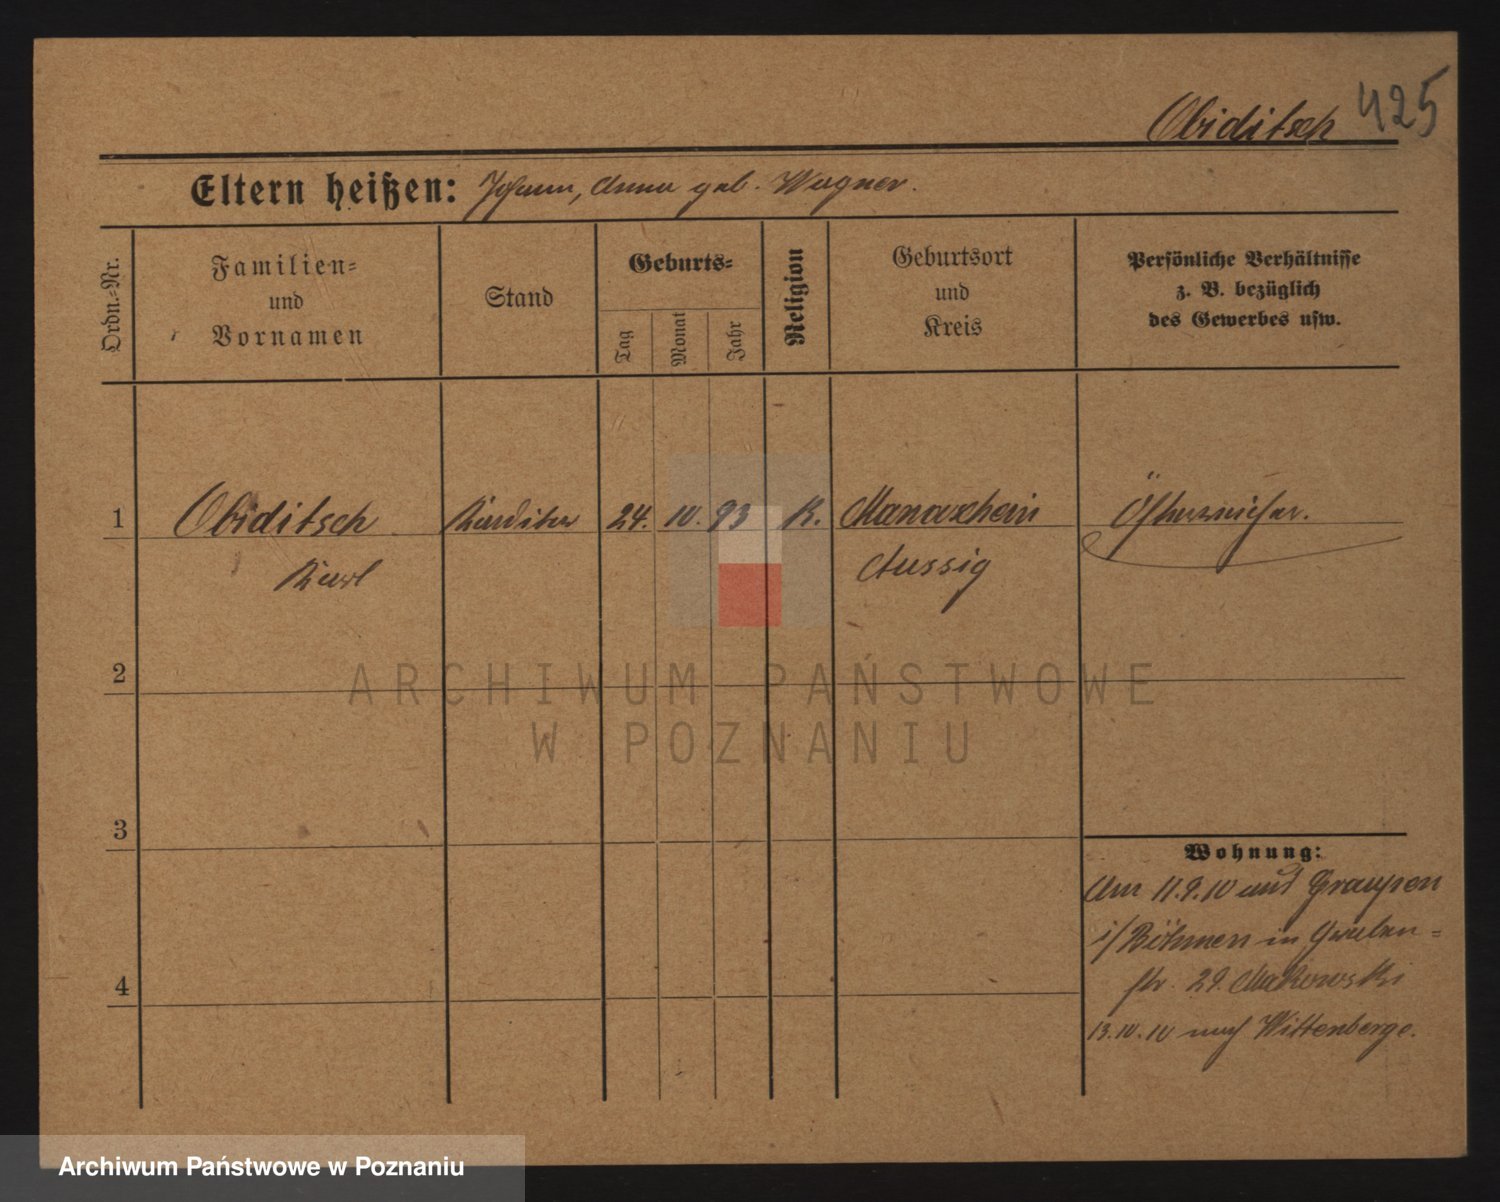 Obiditsch 425
Eltern heißen: Johann, Anna geb. Wagner.
Ordn.=Nr.
Familien=
und
Vornamen
Stand
Geburts=
Tag
Monat
Jahr
Religion
Geburtsort
und
Kreis
Persönliche Verhältnisse
z. B. bezüglich
des Gewerbes usw.
1 Obiditsch Konditor 24. 10. 93 K. Österreicher.
Karl Aussig
2
3
4
Wohnung:
Am 11.9.10 aus Graupen
i/Böhmen in Graben=
str. 29. Makowski
13.10.10 nach Wittenberge.
ARCHIWUM PAŃSTWOWE
W POZNANIU
Archiwum Państwowe w Poznaniu